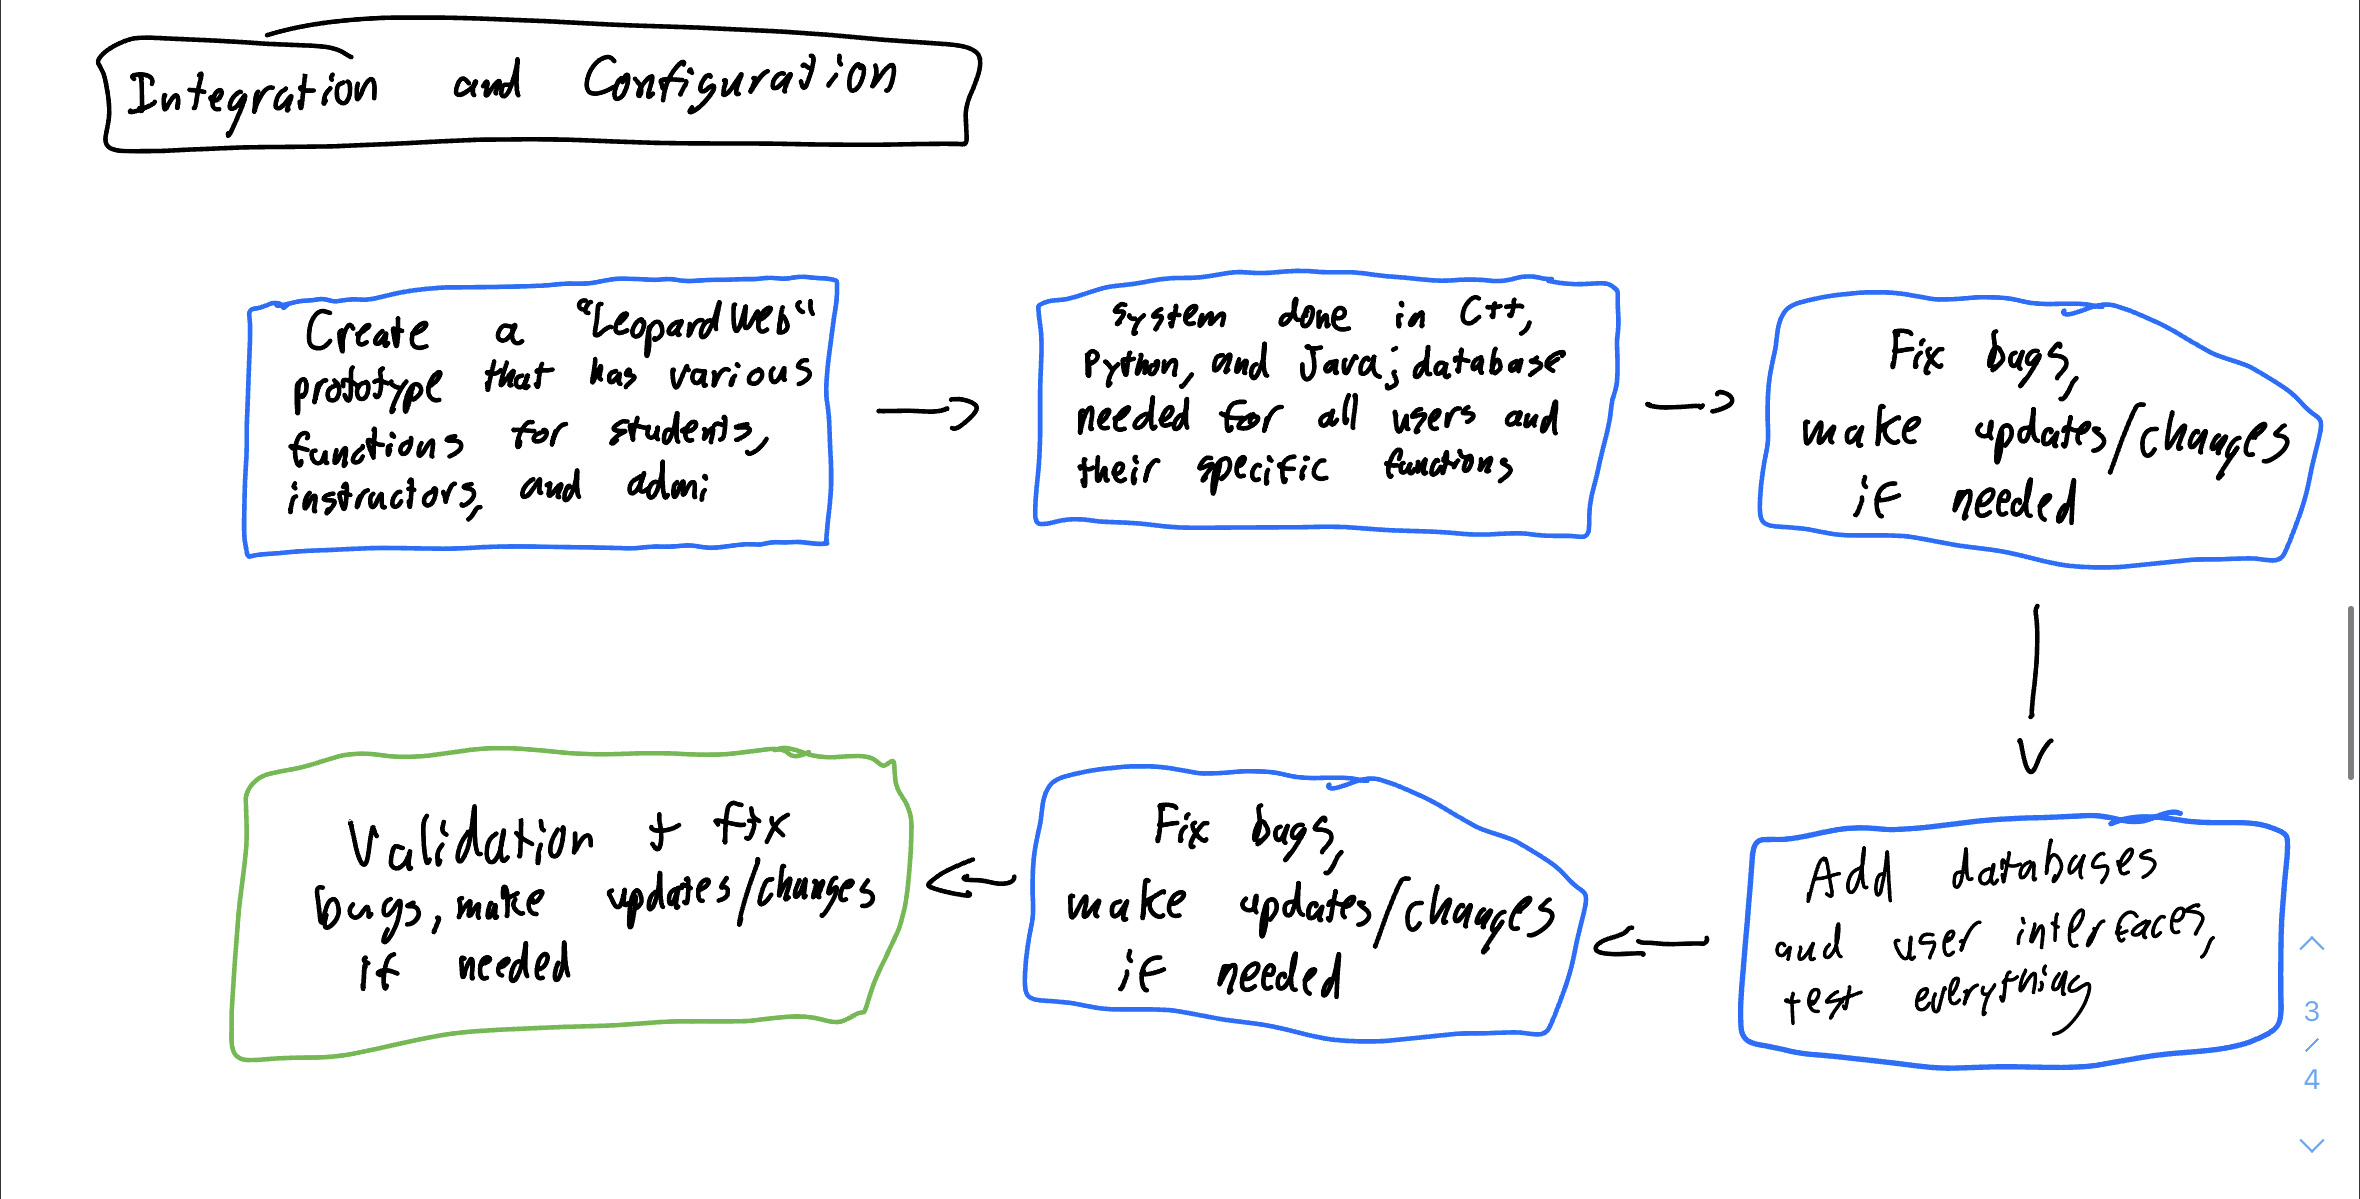 Integration and Configuration
Create a "LeopardWeb"
prototype that has various
functions for students,
instructors, and admi
System done in C++,
Python, and Java; database
needed for all users and
their specific functions
Fix bugs,
make updates/changes
if needed
Add databases
and user interfaces,
test everything
Fix bugs,
make updates/changes
if needed
Validation + fix
bugs, make updates/changes
if needed
3
/
4